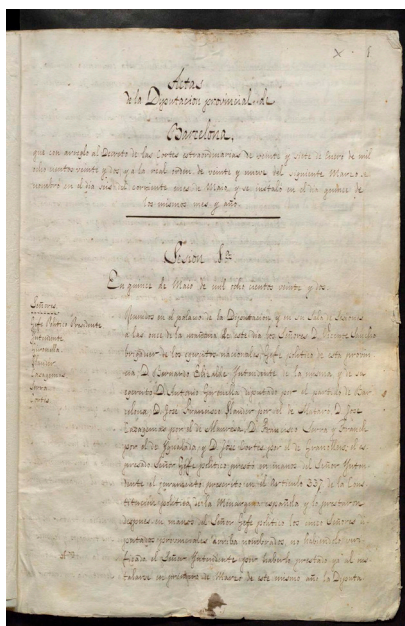 X. 1
Actas
de la Diputacion provincial de
Barcelona,
que con arreglo al Decreto de las Cortes estraordinarias de veinte y siete de Enero de mil
ocho cientos veinte y dos, y a la real orden de veinte y nueve del siguiente Marzo se
nombró en el dia del corriente mes de Mayo, y se instaló en el dia quince de
los mismos mes y año.
Sesion 1ª
En quince de Mayo de mil ocho cientos veinte y dos.
Señores
Gefe Politico Presidente
Intendente
Llauder
Serra
Cortes
Reunidos en el palacio de la Diputacion y en su Sala de Sesiones
a las once de la mañana de este dia los Señores D. Vicente Sancho
brigadier de los egercitos nacionales Gefe politico de esta provin
cia D. Bernardo Elizalde Intendente de la misma y de sa
D. Antonio diputado por el partido de Bar
celona, D. Jose Francisco Llauder por el de Mataró, D. Jose
por el de Manresa, D. Francisco Serra y Franch
por el de Igualada y D. Jose Cortes por el de Granollers, el es
presado Señor Gefe politico prestó en manos del Señor Inten
dente el juramento prescrito en el Articulo 337 de la Cons
titucion politica de la Monarquia española y le prestaron
despues en manos del Señor Gefe politico los cinco Señores di
putados provinciales arriba nombrados, no habiendolo veri
ficado el Señor Intendente por haberlo prestado ya al ins
talarse en primero de Marzo de este mismo año la Diputa